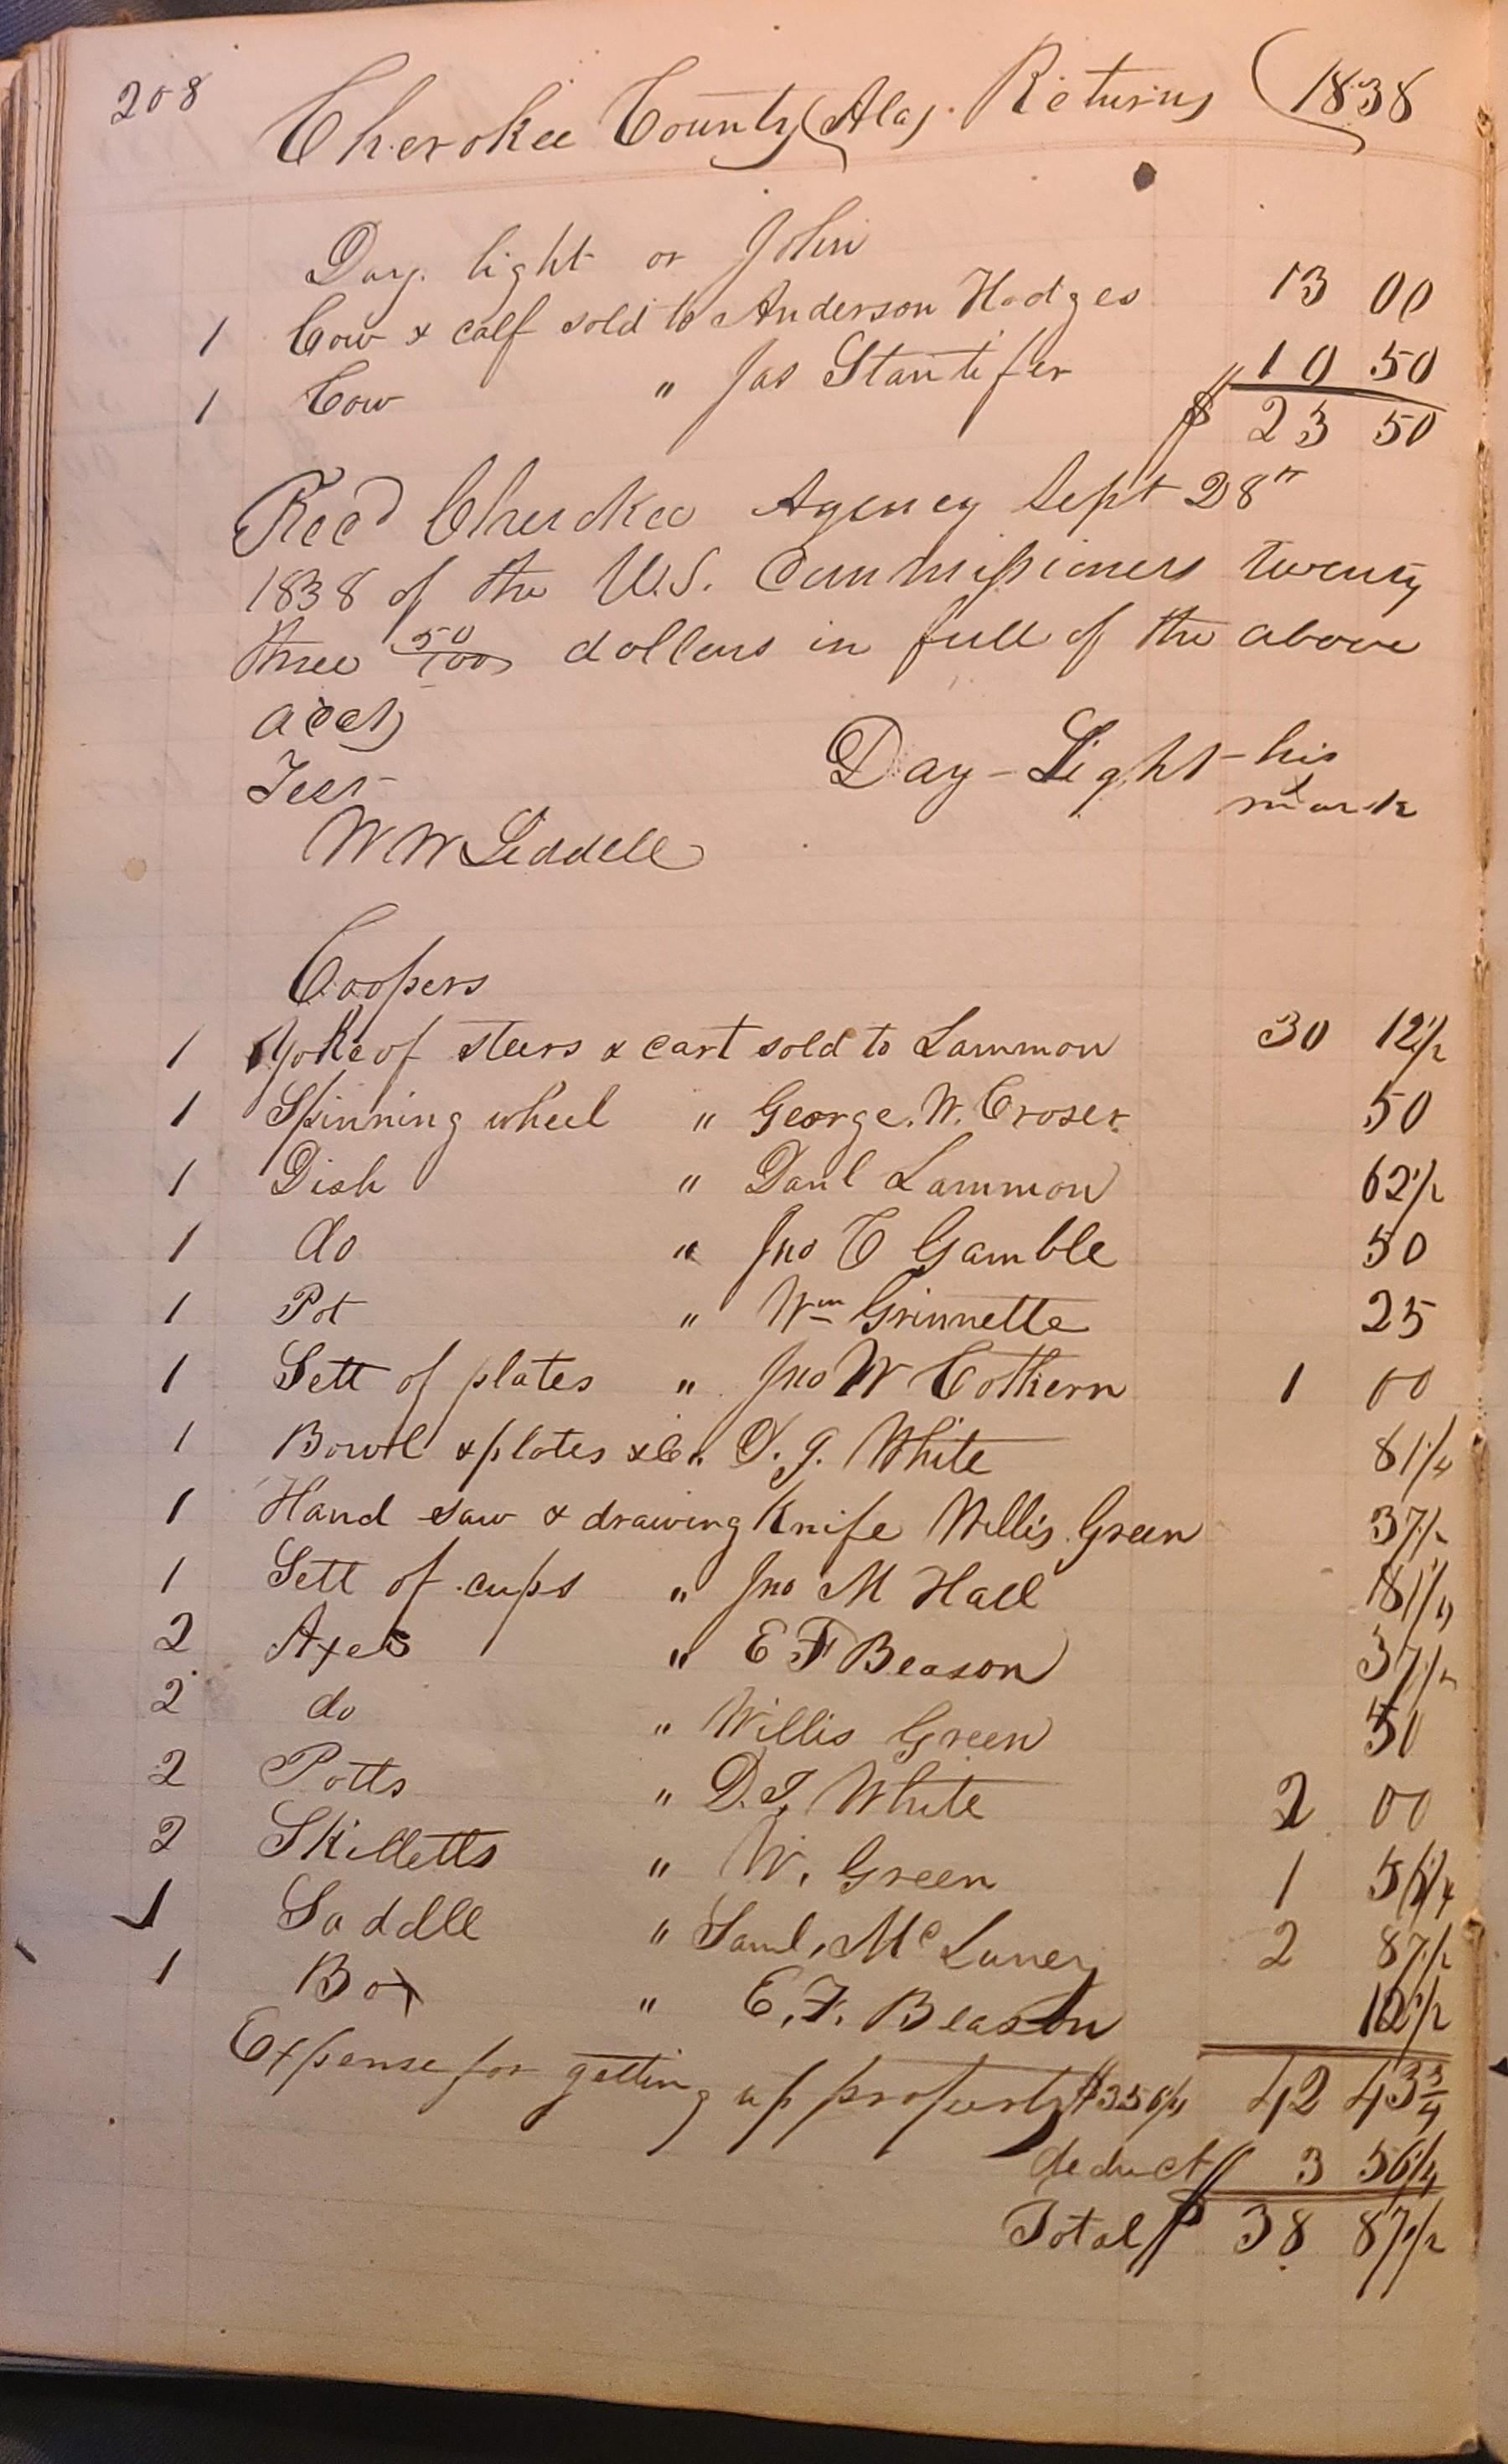 208 Cherokee County (Ala). Returns (1838
Day. light or John
1 Cow & calf sold to Anderson Hodges 13 00
1 Cow " Jas Stantifer 10 50
$ 23 50
Recd Cherokee Agency Sept 28"
1838 of the U.S. Commissioners twenty
three 50/100 dollars in full of the above
acct
Test
Day-Light - his
x
mark
W W Liddell
Coopers
1 Yoke of steers & cart sold to Lammon 30 12 1/2
1 Spinning wheel " George. W. Croser 50
1 Dish " Danl Lammon 62 1/2
1 do " Jno C Gamble 50
1 Pot " Wm Grinnette 25
1 Sett of plates " Jno W Cothern 1 00
1 Bowl & plates &c " D. J. White 81 1/4
1 Hand saw & drawing Knife Willis Green 37 1/2
1 Sett of cups " Jno M Hall 81 1/4
2 Axes " E F Beason 37 1/2
2 do " Willis Green 50
2 Potts " D. J. White 2 00
2 Skilletts " W. Green 1 56 1/4
1 Saddle " Saml. McLuney 2 87 1/2
1 Box " E. F. Beason 12 1/2
Expense for getting up property $3 56 1/4 42 43 3/4
deduct 3 56 1/4
Total $ 38 87 1/2